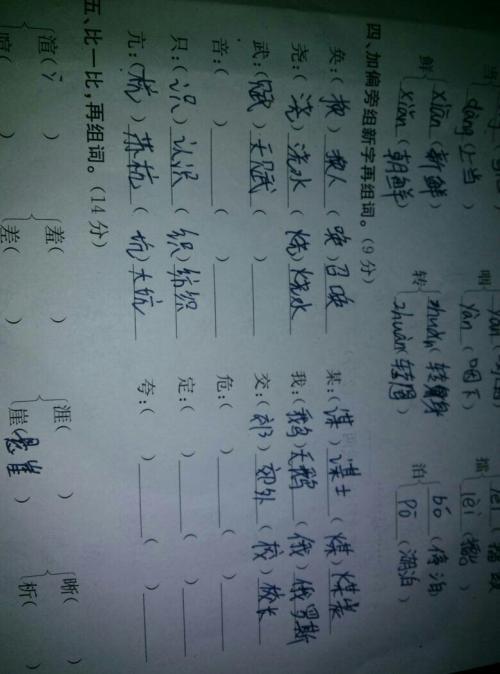 dàng(上当) yàn(咽下) lèi
鲜 xiān(新鲜) 转 zhuǎn 泊 bó(停泊)
xiǎn(朝鲜) zhuàn(转圈) pō(湖泊)
四、加偏旁组新字再组词。(9分)
奂:(换)换人(唤)召唤 某:(谋)谋士(煤)煤炭
尧:(浇)浇水(烧)烧水 我:(鹅)天鹅(俄)俄罗斯
武:(赋)天赋( )____ 交:(郊)郊外(校)校长
音:( )____( )____ 危:( )____( )____
只:(识)认识(织)纺织 定:( )____( )____
亢:(杭)苏杭(坑)大坑 夸:( )____( )____
五、比一比,再组词。(14分)
渲(氵 ) 羞( ) 涯( ) 晰( )
喧( ) 差( ) 崖(悬崖) 析( )